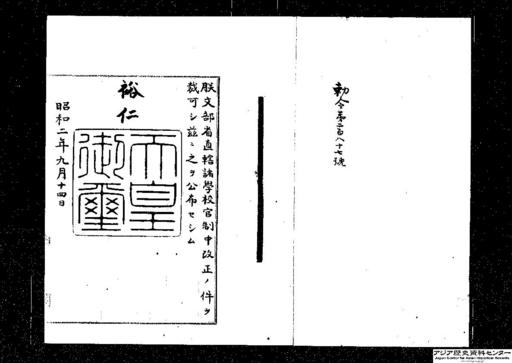 勅令第二百八十七號
朕文部省直轄諸學校官制中改正ノ件ヲ
裁可シ茲ニ之ヲ公布セシム
裕仁
天皇
御璽
昭和二年九月十四日
アジア歴史資料センター
Japan Center for Asian Historical Records